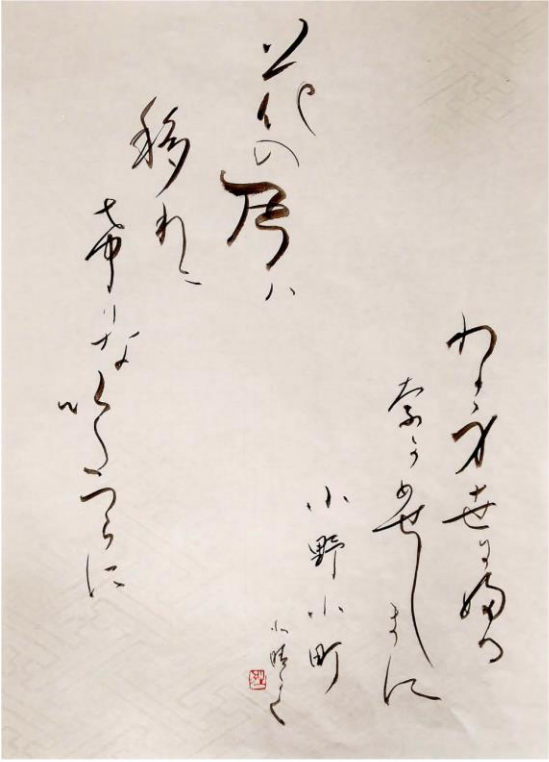 花の色ハ
移りに
希りないたつらに
わか身世に婦る
奈かめせしまに
小野小町